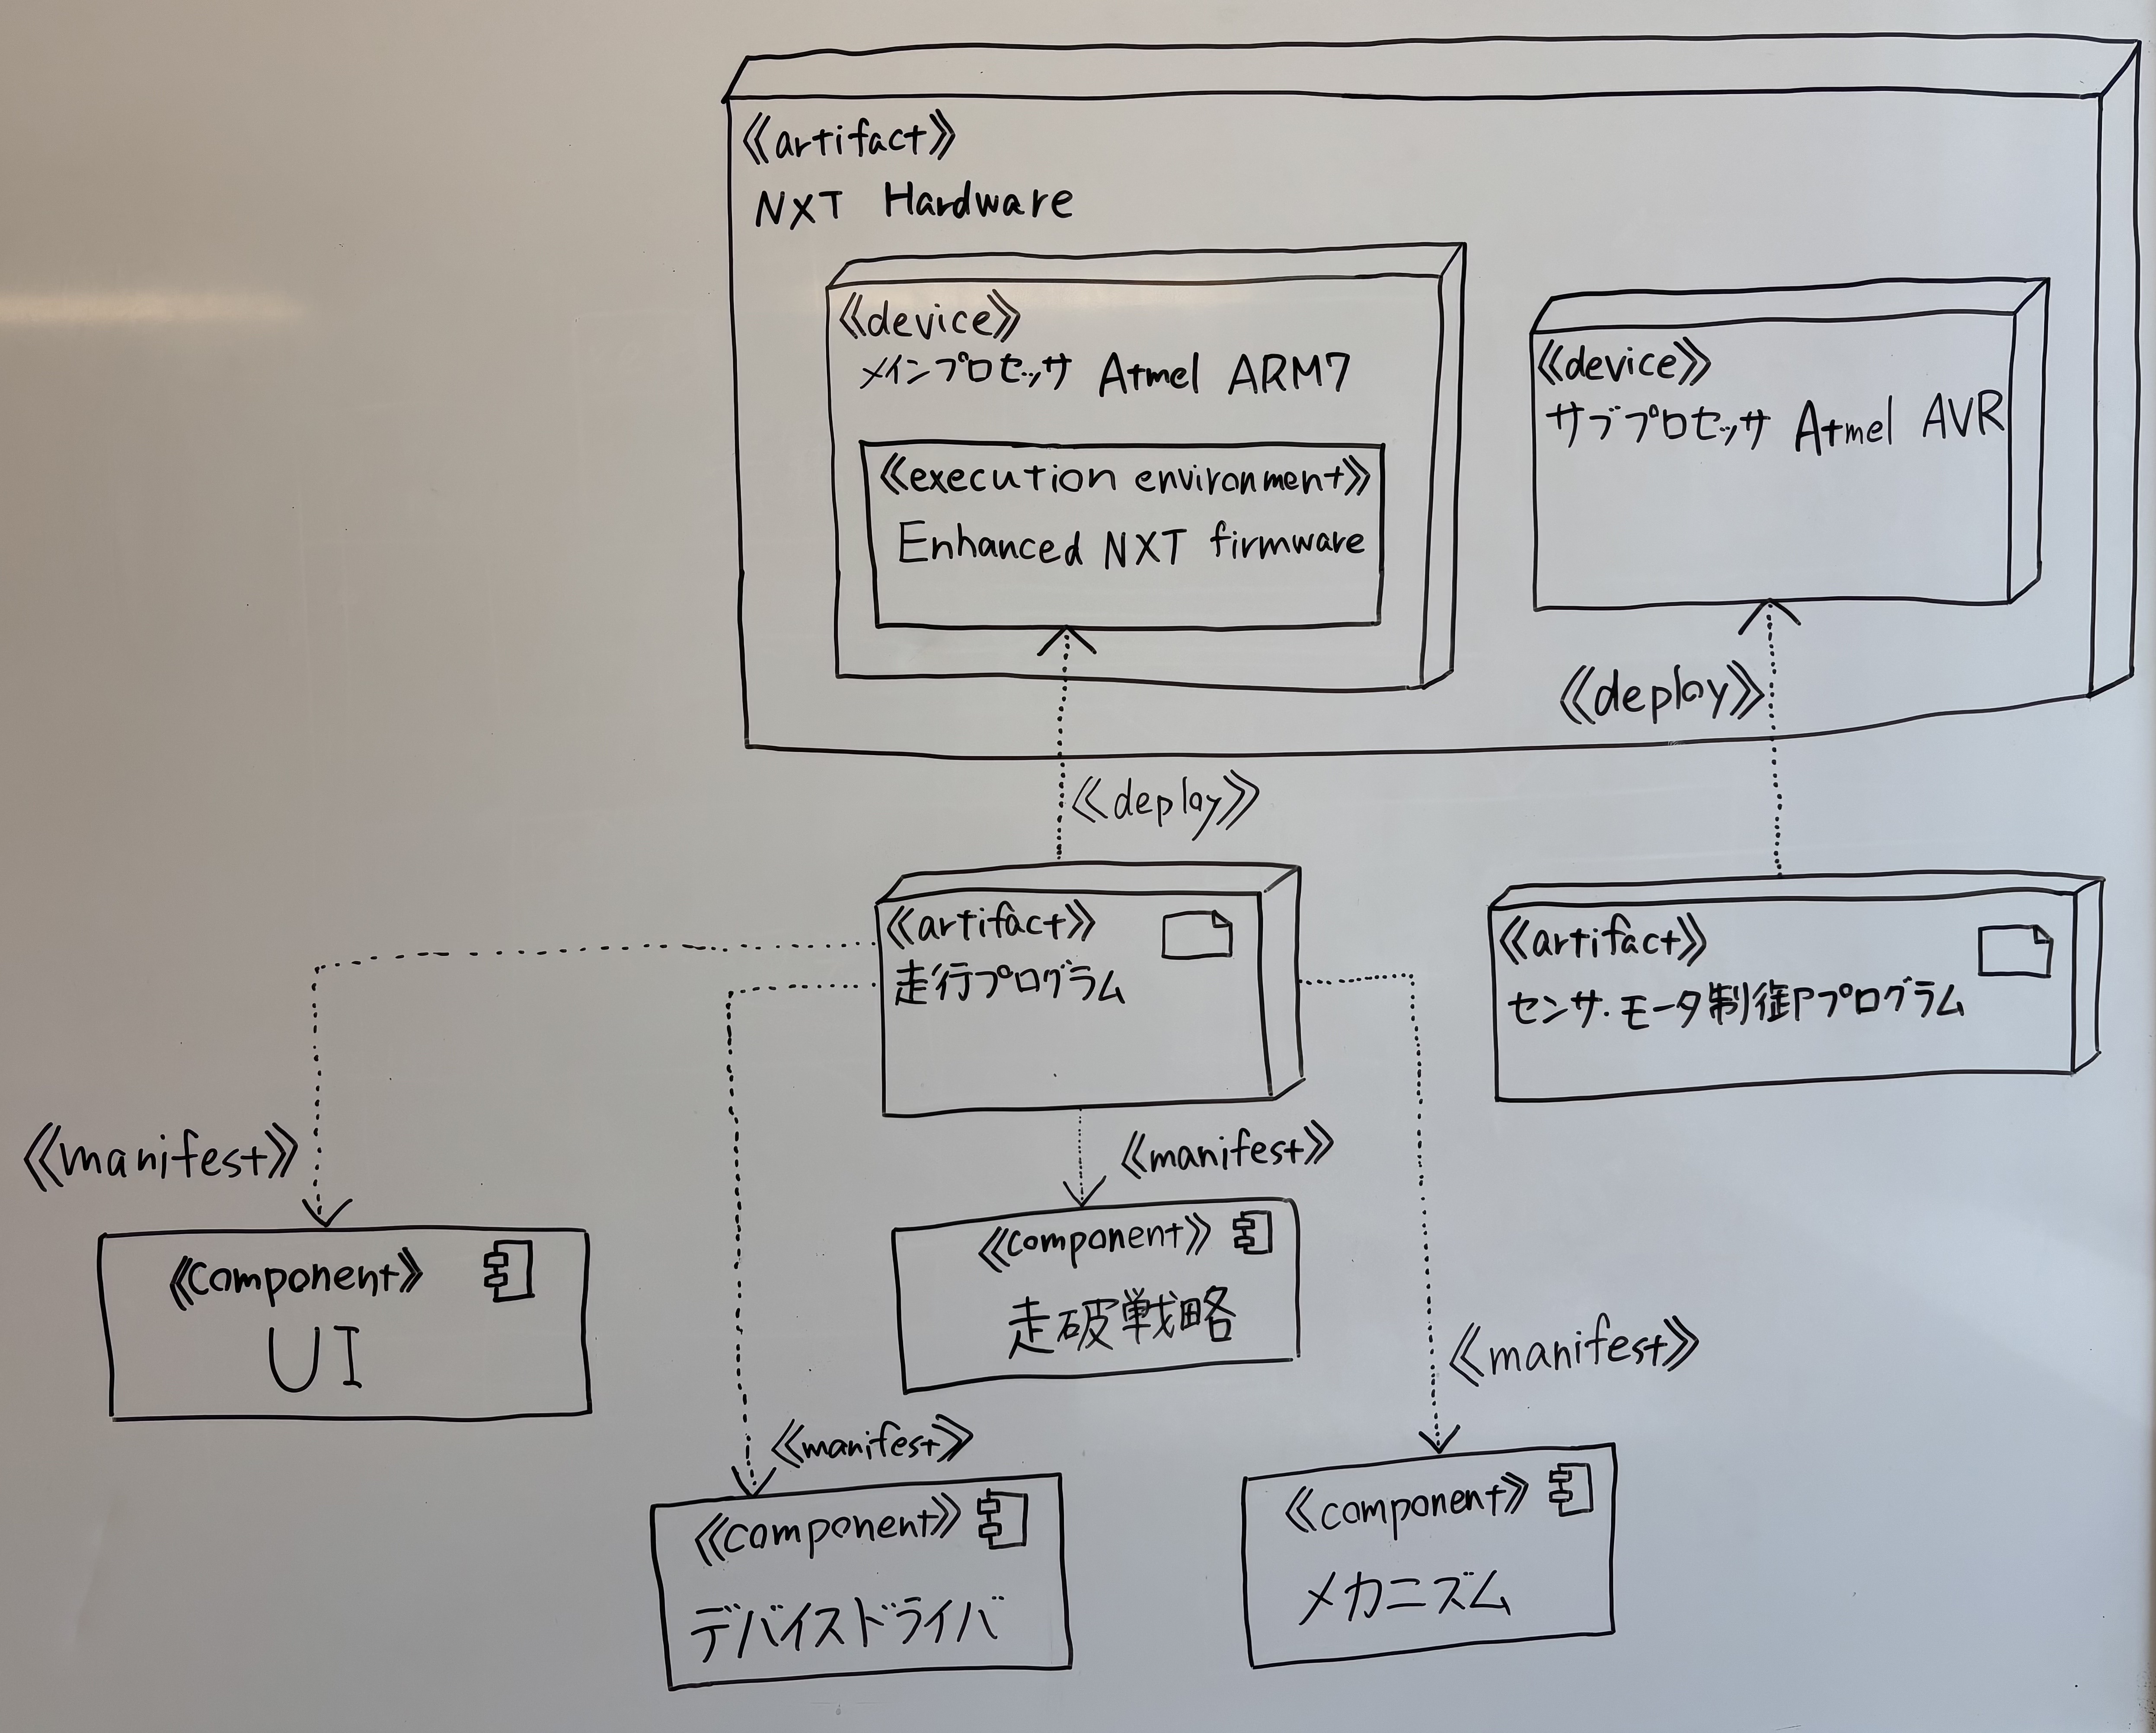 《artifact》
NXT Hardware
《device》
メインプロセッサ Atmel ARM7
《execution environment》
Enhanced NXT firmware
《device》
サブプロセッサ Atmel AVR
《deploy》
《deploy》
《artifact》
走行プログラム
《artifact》
センサ・モータ制御プログラム
《manifest》
《manifest》
《component》
UI
《component》
走破戦略
《manifest》
《manifest》
《component》
デバイスドライバ
《component》
メカニズム